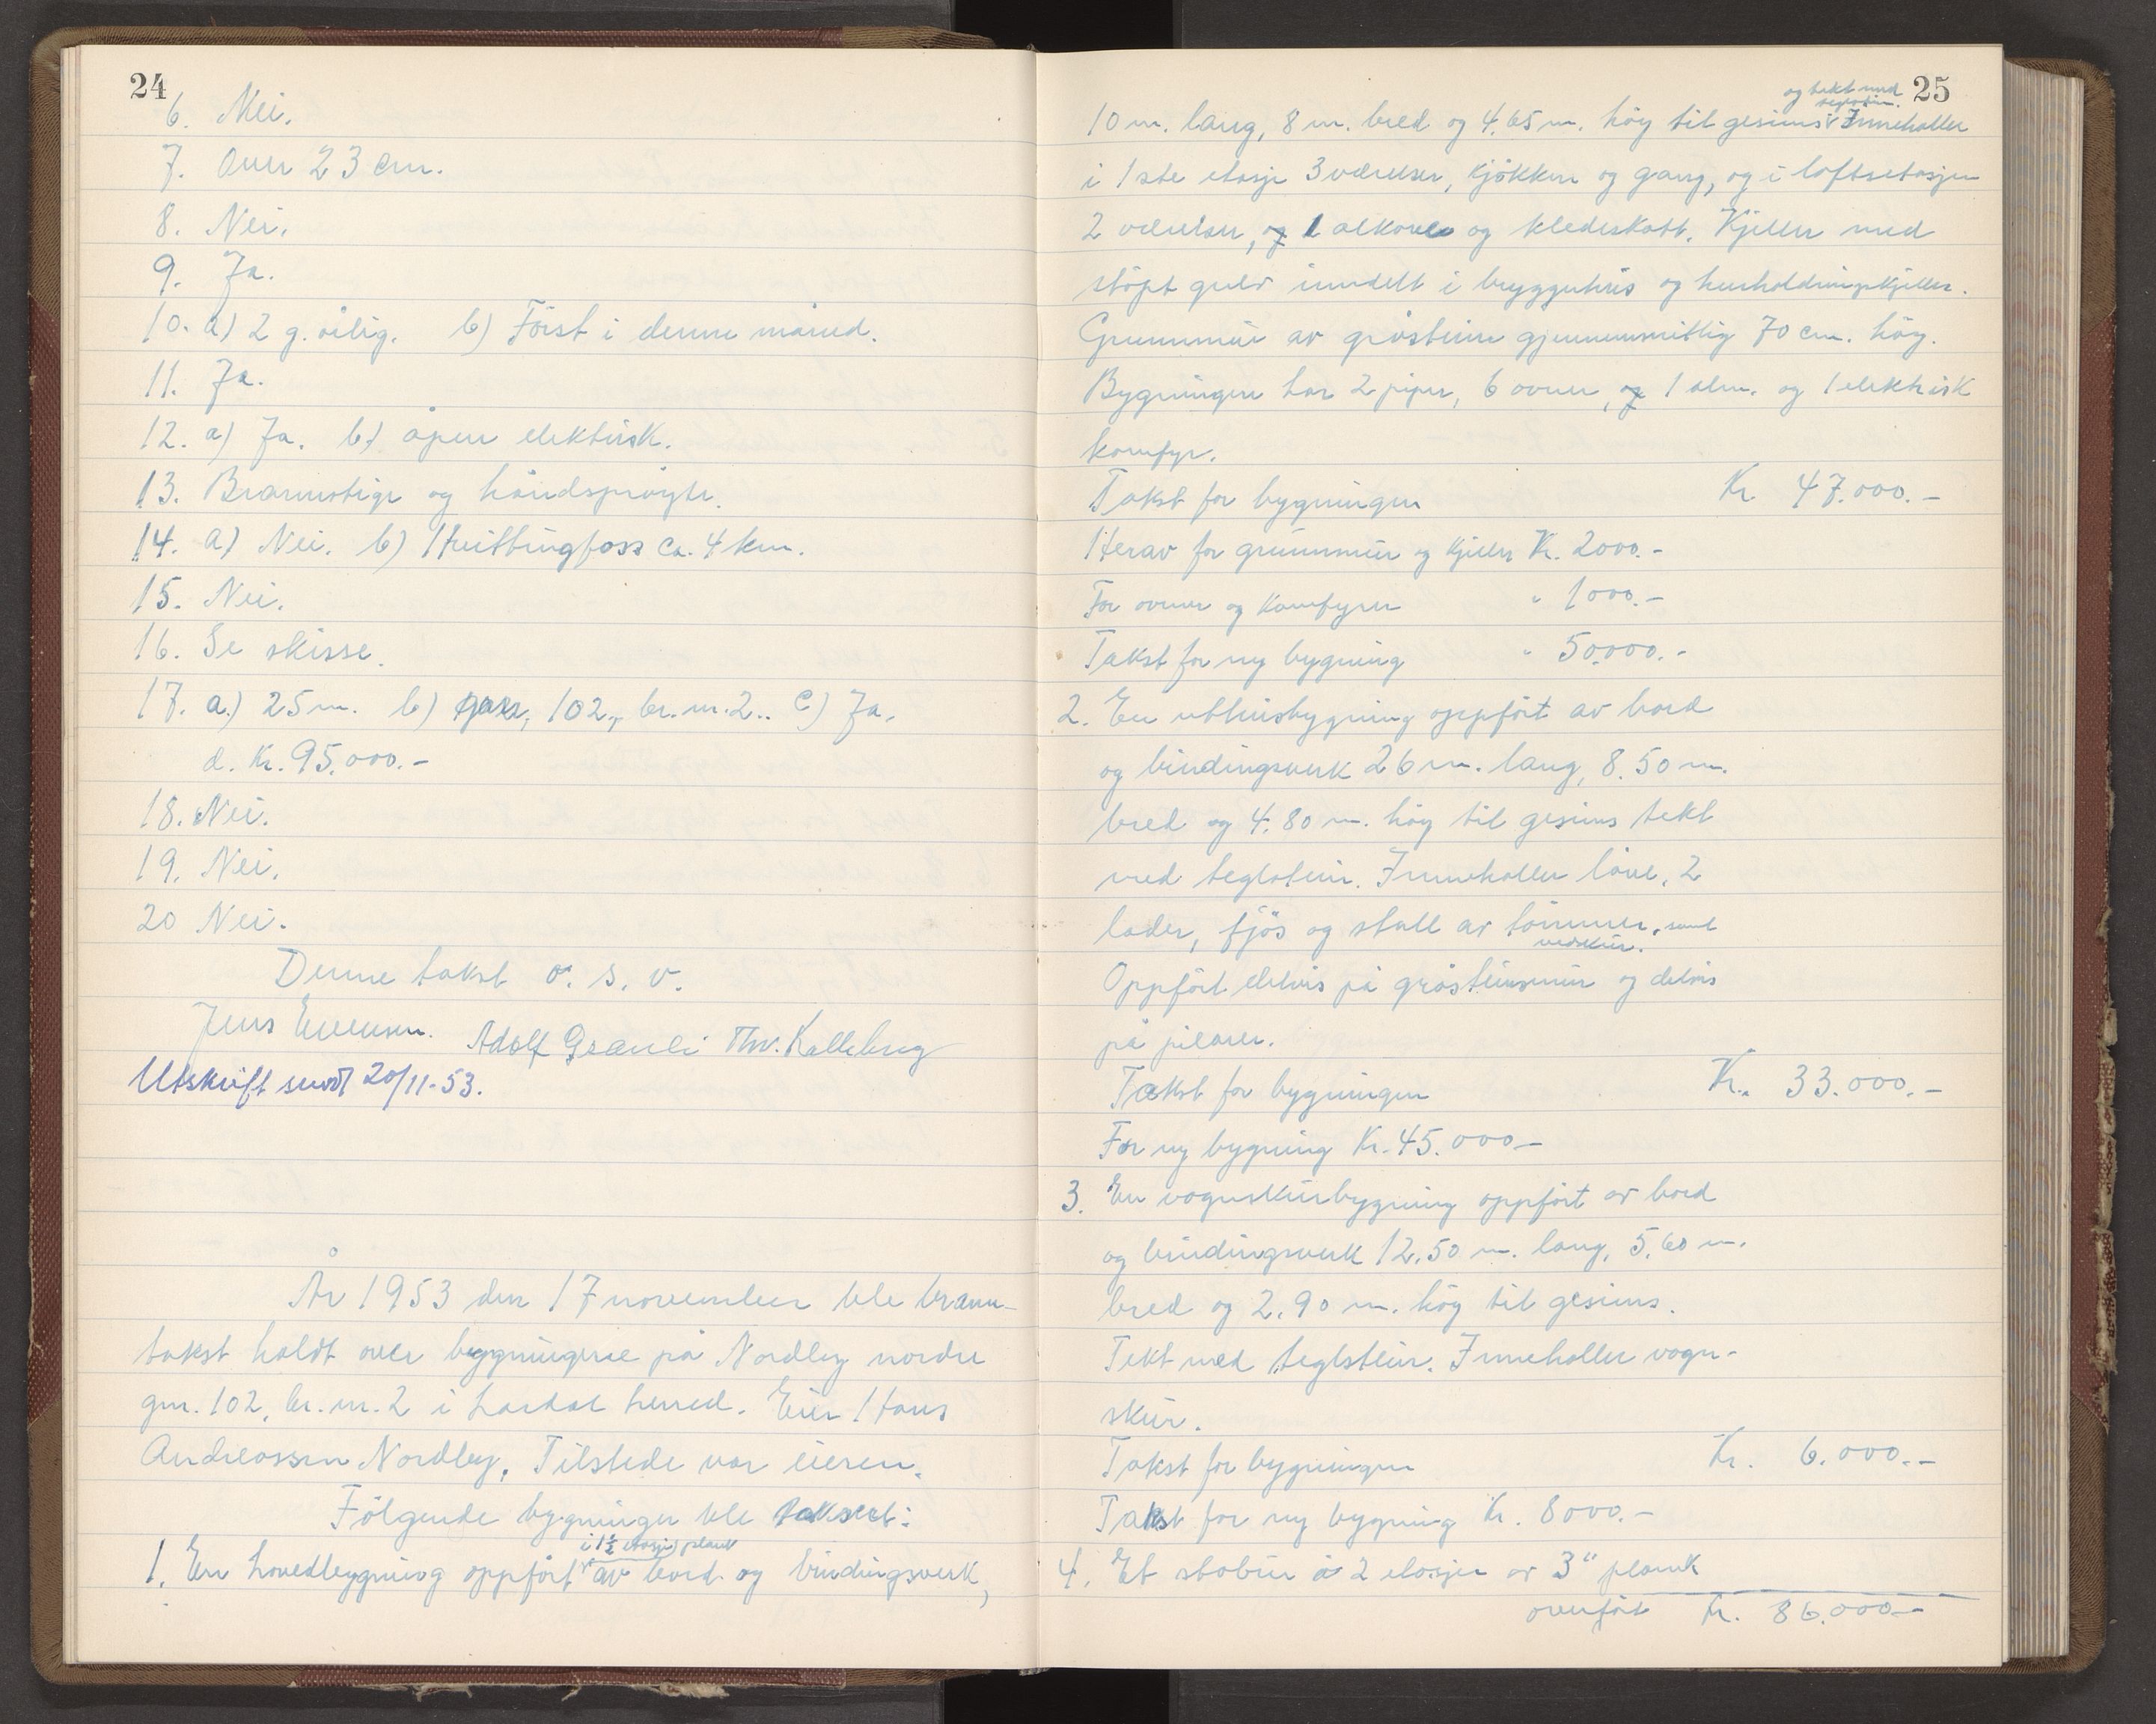 24
6. Nei.
7. Over 23 cm.
8. Nei.
9. Ja.
10. a) 2 g. årlig. b) Først i denne måned.
11. Ja.
12. a) Ja. b) åpen elektrisk.
13. Brannstige og håndsprøyte.
14. a) Nei. b) Hvittingfoss ca. 4 km.
15. Nei.
16. Se skisse.
17. a.) 25 m. b) 102, br.nr. 2.. c) Ja.
d. Kr. 95.000.-
18. Nei.
19. Nei.
20 Nei.
Denne takst o. s. v.
Jens Evensen. Adolf Granli Thv. Kalleberg
Utskrift sendt 20/11-53.
År 1953 den 17 november ble brann-
takst holdt over bygningene på Nordby nordre
gnr. 102, br.nr. 2 i Lardal herred. Eier Hans
Andreassen Nordby. Tilstede var eieren.
Følgende bygninger ble taksert:
i 1½ etasje plank
1. En hovedbygning oppført av bord og bindingsverk,
25
og tekt med
teglstein.
10 m. lang, 8 m. bred og 4.65 m. høy til gesims Inneholler
i 1ste etasje 3 værelser, kjøkken og gang, og i loftsetasjen
2 værelser, og 1 alkove og kledeskott. Kjeller med
støpt gulv inndelt i bryggehus og husholdningskjeller.
Grunnmur av gråstein gjennemsnittlig 70 cm. høy.
Bygningen har 2 piper, 6 ovner, og 1 alm. og 1 elektrisk
komfyr.
Takst for bygningen Kr. 47.000.-
Herav for grunnmur og kjeller Kr. 2000.-
For ovner og komfyrer " 1000.-
Takst for ny bygning " 50.000.-
2. En uthusbygning oppført av bord
og bindingsverk 26 m. lang, 8.50 m.
bred og 4.80 m. høy til gesims tekt
med teglstein. Inneholler låve, 2
lader, fjøs og stall av tømmer, samt
vedskur.
Oppført delvis på gråsteinsmur og delvis
på pilarer.
Takst for bygningen Kr. 33.000.-
For ny bygning Kr. 45.000-
3. En vognskursbygning oppført av bord
og bindingsverk 12.50 m. lang, 5.60 m.
bred og 2.90 m. høy til gesims.
Tekt med teglstein. Inneholler vogn-
skur.
Takst for bygningen Kr. 6.000.-
Takst for ny bygning Kr. 8000.-
4. Et stabur i 2 etasjer av 3" plank
overført Kr. 86.000-